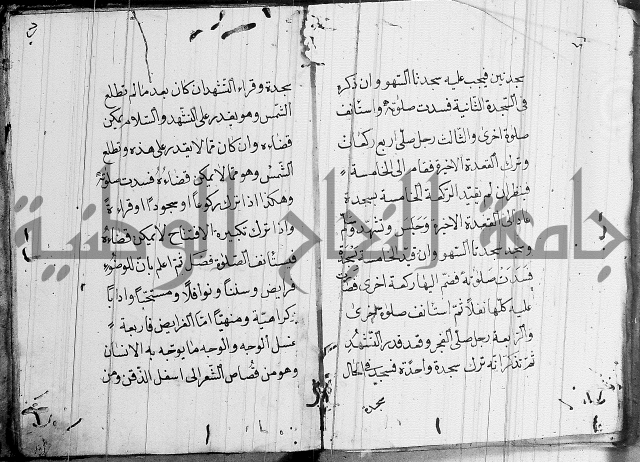 سجدتين فيجب عليه سجدتا السهو وان ذكره
في السجدة الثانية فسدت صلوته واستأنف
صلوة اخرى والثالث رجل صلى اربع ركعات
وترك القعدة الاخيرة فقام الى الخامسة
فينظر ان لم يقيد الركعة الخامسة بسجدة
عاد الى القعدة الاخيرة وجلس وتشهد وسلم
وسجد سجدتا السهو وان قيد الخامسة بسجدة
فسدت صلوته فضم اليها ركعة اخرى
عليه كلها نفلا ثم استأنف صلوة اخرى
والرابعة رجل صلى الفجر وقعد قدر التشهد
ثم تذكر انه ترك سجدة واحدة فسجد في الحال
سجدة
سجدة وقراء التشهد ان كان بعد ما لم تطلع
الشمس وهو يقدر على التشهد والسلام يمكن
قضاءه وان كان مما لا يقدر على هذه وتطلع
الشمس وهو مما لا يمكن قضاءه فسدت صلوته
وهكذا اذا ترك ركوعا او سجودا او قراءة
واذا ترك تكبيرة الافتتاح لا يمكن قضاءه
فيستأنف الصلوة فصل ثم اعلم بان للوضوء
فرايض وسننا ونوافلا ومستحبا وادابا
وكراهية ومنهيا اما الفرايض فاربعة
غسل الوجه والوجه ما يوجه به الانسان
وهو من قصاص الشعر الى اسفل الذقن ومن
جامعة النجاح الوطنية